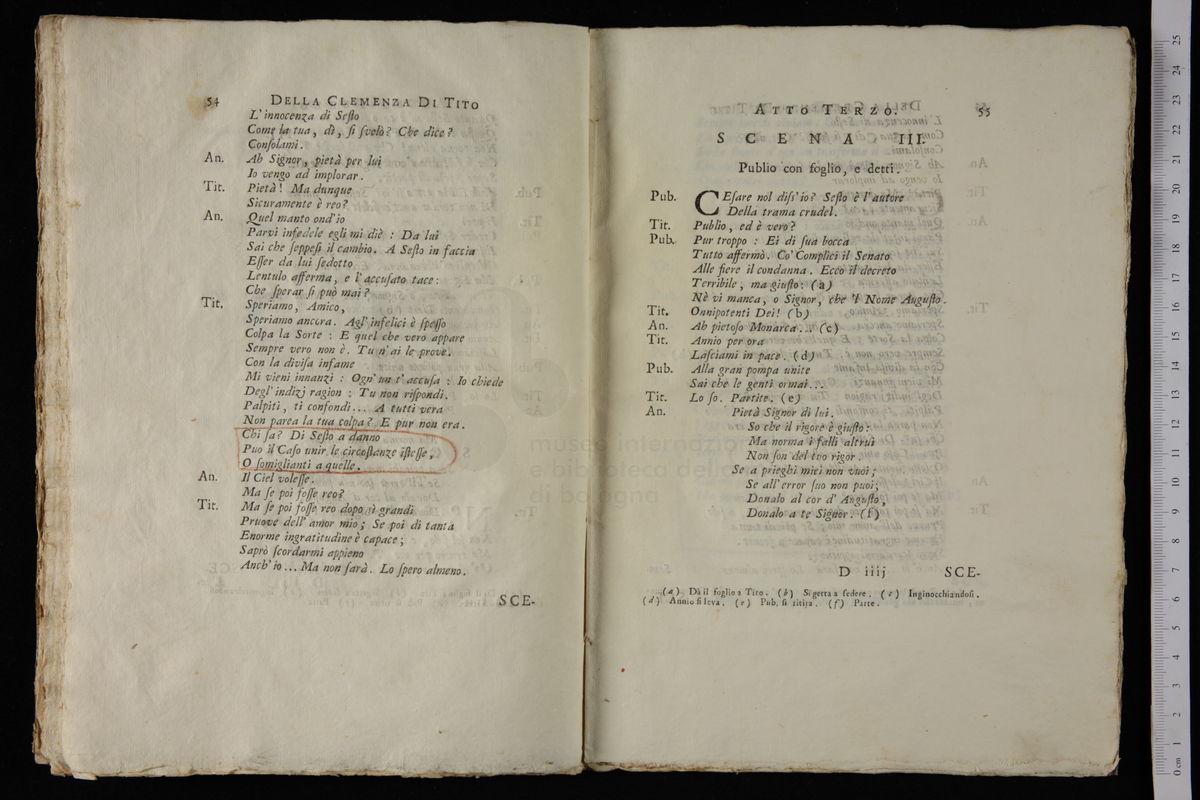 54
DELLA CLEMENZA DI TITO
L'innocenza di Seſto
Come la tua, dì, ſi ſvelò? Che dice?
Conſolami.
An. Ah Signor, pietà per lui
Io vengo ad implorar.
Tit. Pietà! Ma dunque
Sicuramente è reo?
An. Quel manto ond'io
Parvi infedele egli mi diè: Da lui
Sai che ſeppeſi il cambio. A Seſto in faccia
Eſſer da lui ſedotto
Lentulo afferma, e l'accuſato tace:
Che ſperar ſi può mai?
Tit. Speriamo, Amico,
Speriamo ancora. Agl'infelici è ſpeſſo
Colpa la Sorte: E quel che vero appare
Sempre vero non è. Tu n'ai le prove.
Con la diviſa infame
Mi vieni innanzi: Ogn'un t'accuſa: Io chiede
Degl'indizj ragion: Tu non riſpondi.
Palpiti, ti confondi... A tutti vera
Non parea la tua colpa? E pur non era.
Chi ſa? Di Seſto a danno
Puo il Caſo unir le circoſtanze iſteſſe,
O ſomiglianti a quelle.
An. Il Ciel voleſſe.
Ma ſe poi foſſe reo?
Tit. Ma ſe poi foſſe reo dopo sì grandi
Pruove dell'amor mio; Se poi di tanta
Enorme ingratitudine è capace;
Saprò ſcordarmi appieno
Anch'io... Ma non ſarà. Lo ſpero almeno.
SCE-
ATTO TERZO.
55
SCENA III.
Publio con foglio, e detti.
Pub. CEſare nol diſs'io? Seſto è l'autore
Della trama crudel.
Tit. Publio, ed è vero?
Pub. Pur troppo: Ei di ſua bocca
Tutto affermò. Co' Complici il Senato
Alle fiere il condanna. Ecco il decreto
Terribile, ma giuſto: (a)
Nè vi manca, o Signor, che 'l Nome Auguſto.
Tit. Onnipotenti Dei! (b)
An. Ah pietoſo Monarca... (c)
Tit. Annio per ora
Laſciami in pace. (d)
Pub. Alla gran pompa unite
Sai che le genti ormai...
Tit. Lo ſo. Partite. (e)
An. Pietà Signor di lui.
So che il rigore è giuſto:
Ma norma i falli altrui
Non ſon del tuo rigor.
Se a prieghi miei non vuoi;
Se all'error ſuo non puoi;
Donalo al cor d'Auguſto,
Donalo a te Signor. (f)
D iiij
SCE-
(a) Dà il foglio a Tito. (b) Si getta a ſedere. (c) Inginocchiandoſi.
(d) Annio ſi leva. (e) Pub. ſi ritira. (f) Parte.
museo internazio
e biblioteca della
di bologna
0 cm 1 2 3 4 5 6 7 8 9 10 11 12 13 14 15 16 17 18 19 20 21 22 23 24 25